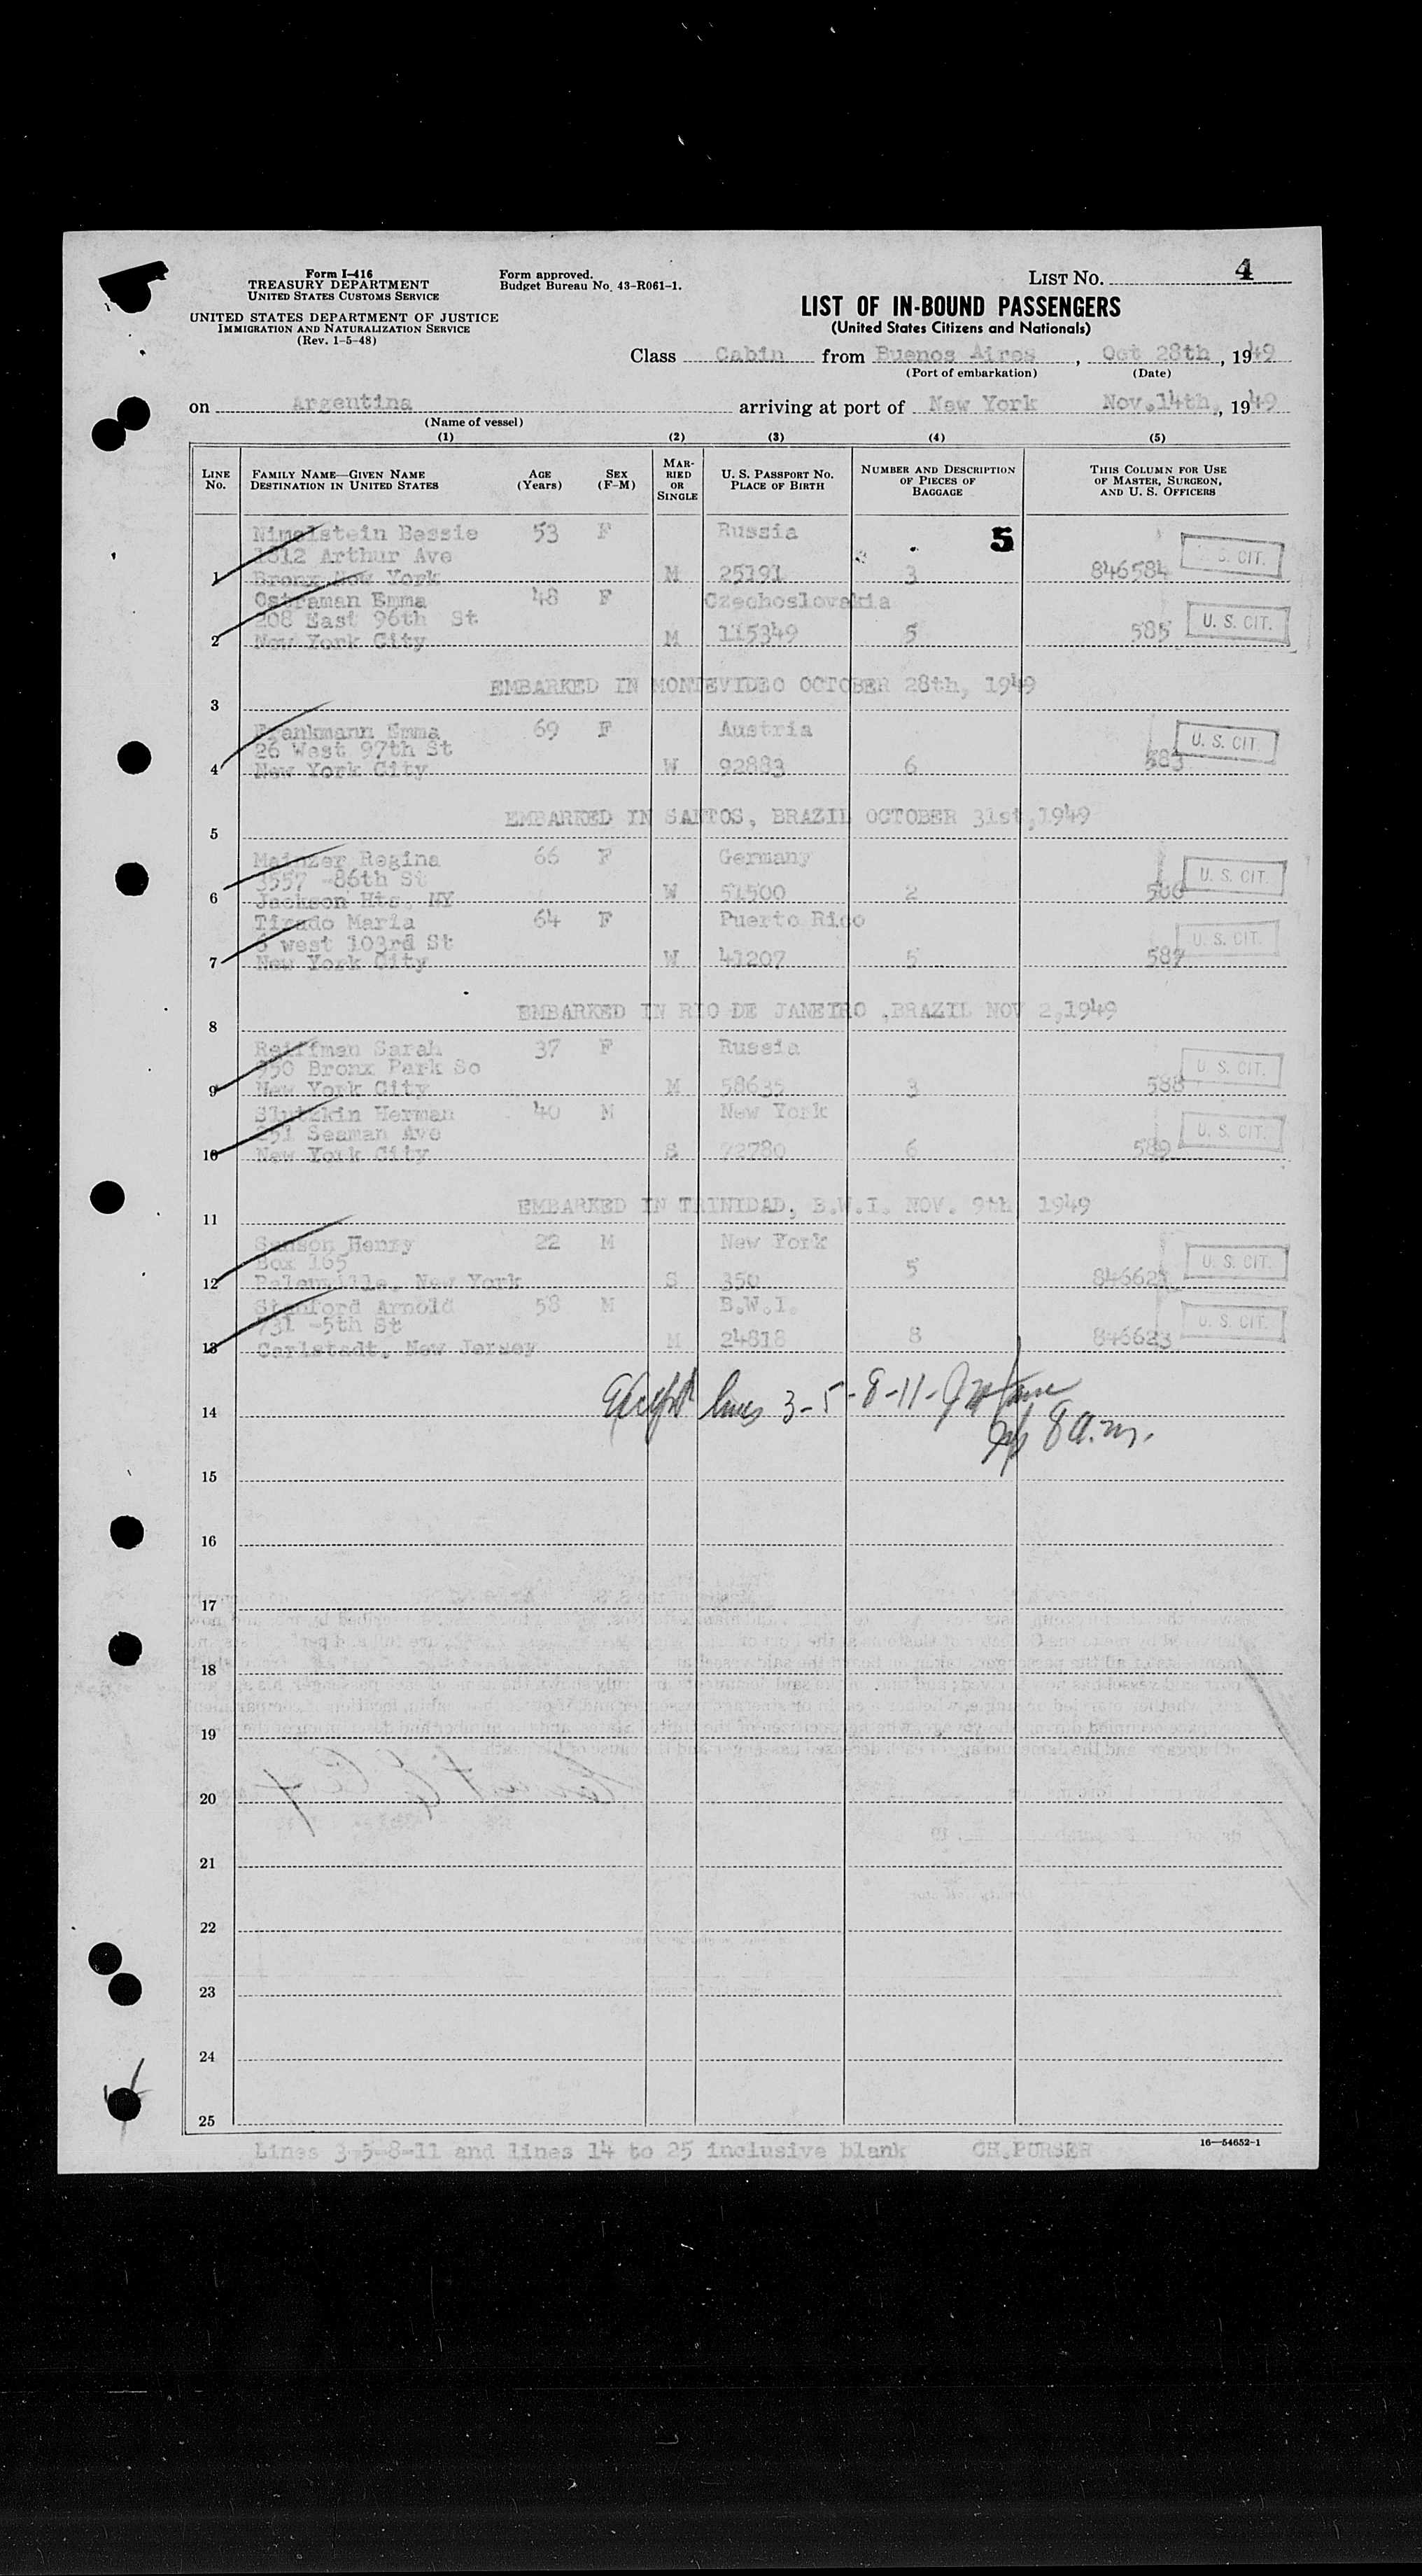 Form I-416
TREASURY DEPARTMENT
UNITED STATES CUSTOMS SERVICE
UNITED STATES DEPARTMENT OF JUSTICE
IMMIGRATION AND NATURALIZATION SERVICE
(Rev. 1-5-48)
Form approved.
Budget Bureau No. 43-R061-1.
LIST NO. 4
LIST OF IN-BOUND PASSENGERS
(United States Citizens and Nationals)
Class Cabin from Buenos Aires, Oct 28th, 1949
(Port of embarkation) (Date)
on Argentina arriving at port of New York Nov.14th, 1949
(Name of vessel)
(1) (2) (3) (4) (5)
LINE NO. FAMILY NAME—GIVEN NAME DESTINATION IN UNITED STATES AGE (Years) SEX (F-M) MARRIED OR SINGLE U. S. PASSPORT NO. PLACE OF BIRTH NUMBER AND DESCRIPTION OF PIECES OF BAGGAGE THIS COLUMN FOR USE OF MASTER, SURGEON, AND U. S. OFFICERS
Bessie 53 F Russia 5
Arthur Ave U. S. CIT.
1 Bronx New York M 25191 3 846584
Emma 48 F Czechoslovakia
208 East 96th St U. S. CIT.
2 New York City M 115349 5 585
3 EMBARKED IN MONTEVIDEO OCTOBER 28th, 1949
Frankmann Emma 69 F Austria
26 West 97th St U. S. CIT.
4 New York City W 92883 6 583
5 EMBARKED IN SANTOS, BRAZIL OCTOBER 31st,1949
Mainzer Regina 66 F Germany
3557 -86th St U. S. CIT.
6 Jackson Hts. NY W 51500 2 586
Tirado Maria 64 F Puerto Rico
6 west 103rd St U. S. CIT.
7 New York City W 41207 5 587
8 EMBARKED IN RIO DE JANEIRO ,BRAZIL NOV 2,1949
Reiffman Sarah 37 F Russia
950 Bronx Park So U. S. CIT.
9 New York City M 58635 3 588
Slutzkin Herman 40 M New York
251 Seaman Ave U. S. CIT.
10 New York City S 72780 6 589
11 EMBARKED IN TRINIDAD, B.W.I. NOV. 9th 1949
Henry 22 M New York
Box 165 U. S. CIT.
12 Palenville, New York S 350 5 846621
Stanford Arnold 58 M B.W.I.
731 -5th St U. S. CIT.
13 Carlstadt, New Jersey M 24818 8 846623
Except lines 3-5-8-11-
14
8 a.m.
15
16
17
18
19
20
21
22
23
24
25
Lines 3-5-8-11 and lines 14 to 25 inclusive blank CH.PURSER
16—54652-1